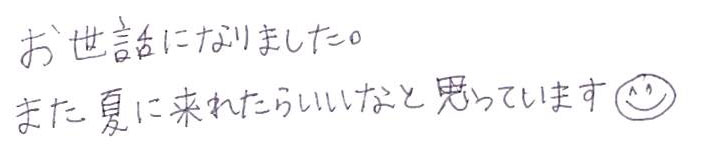 お世話になりました。
また夏に来れたらいいなと思っています